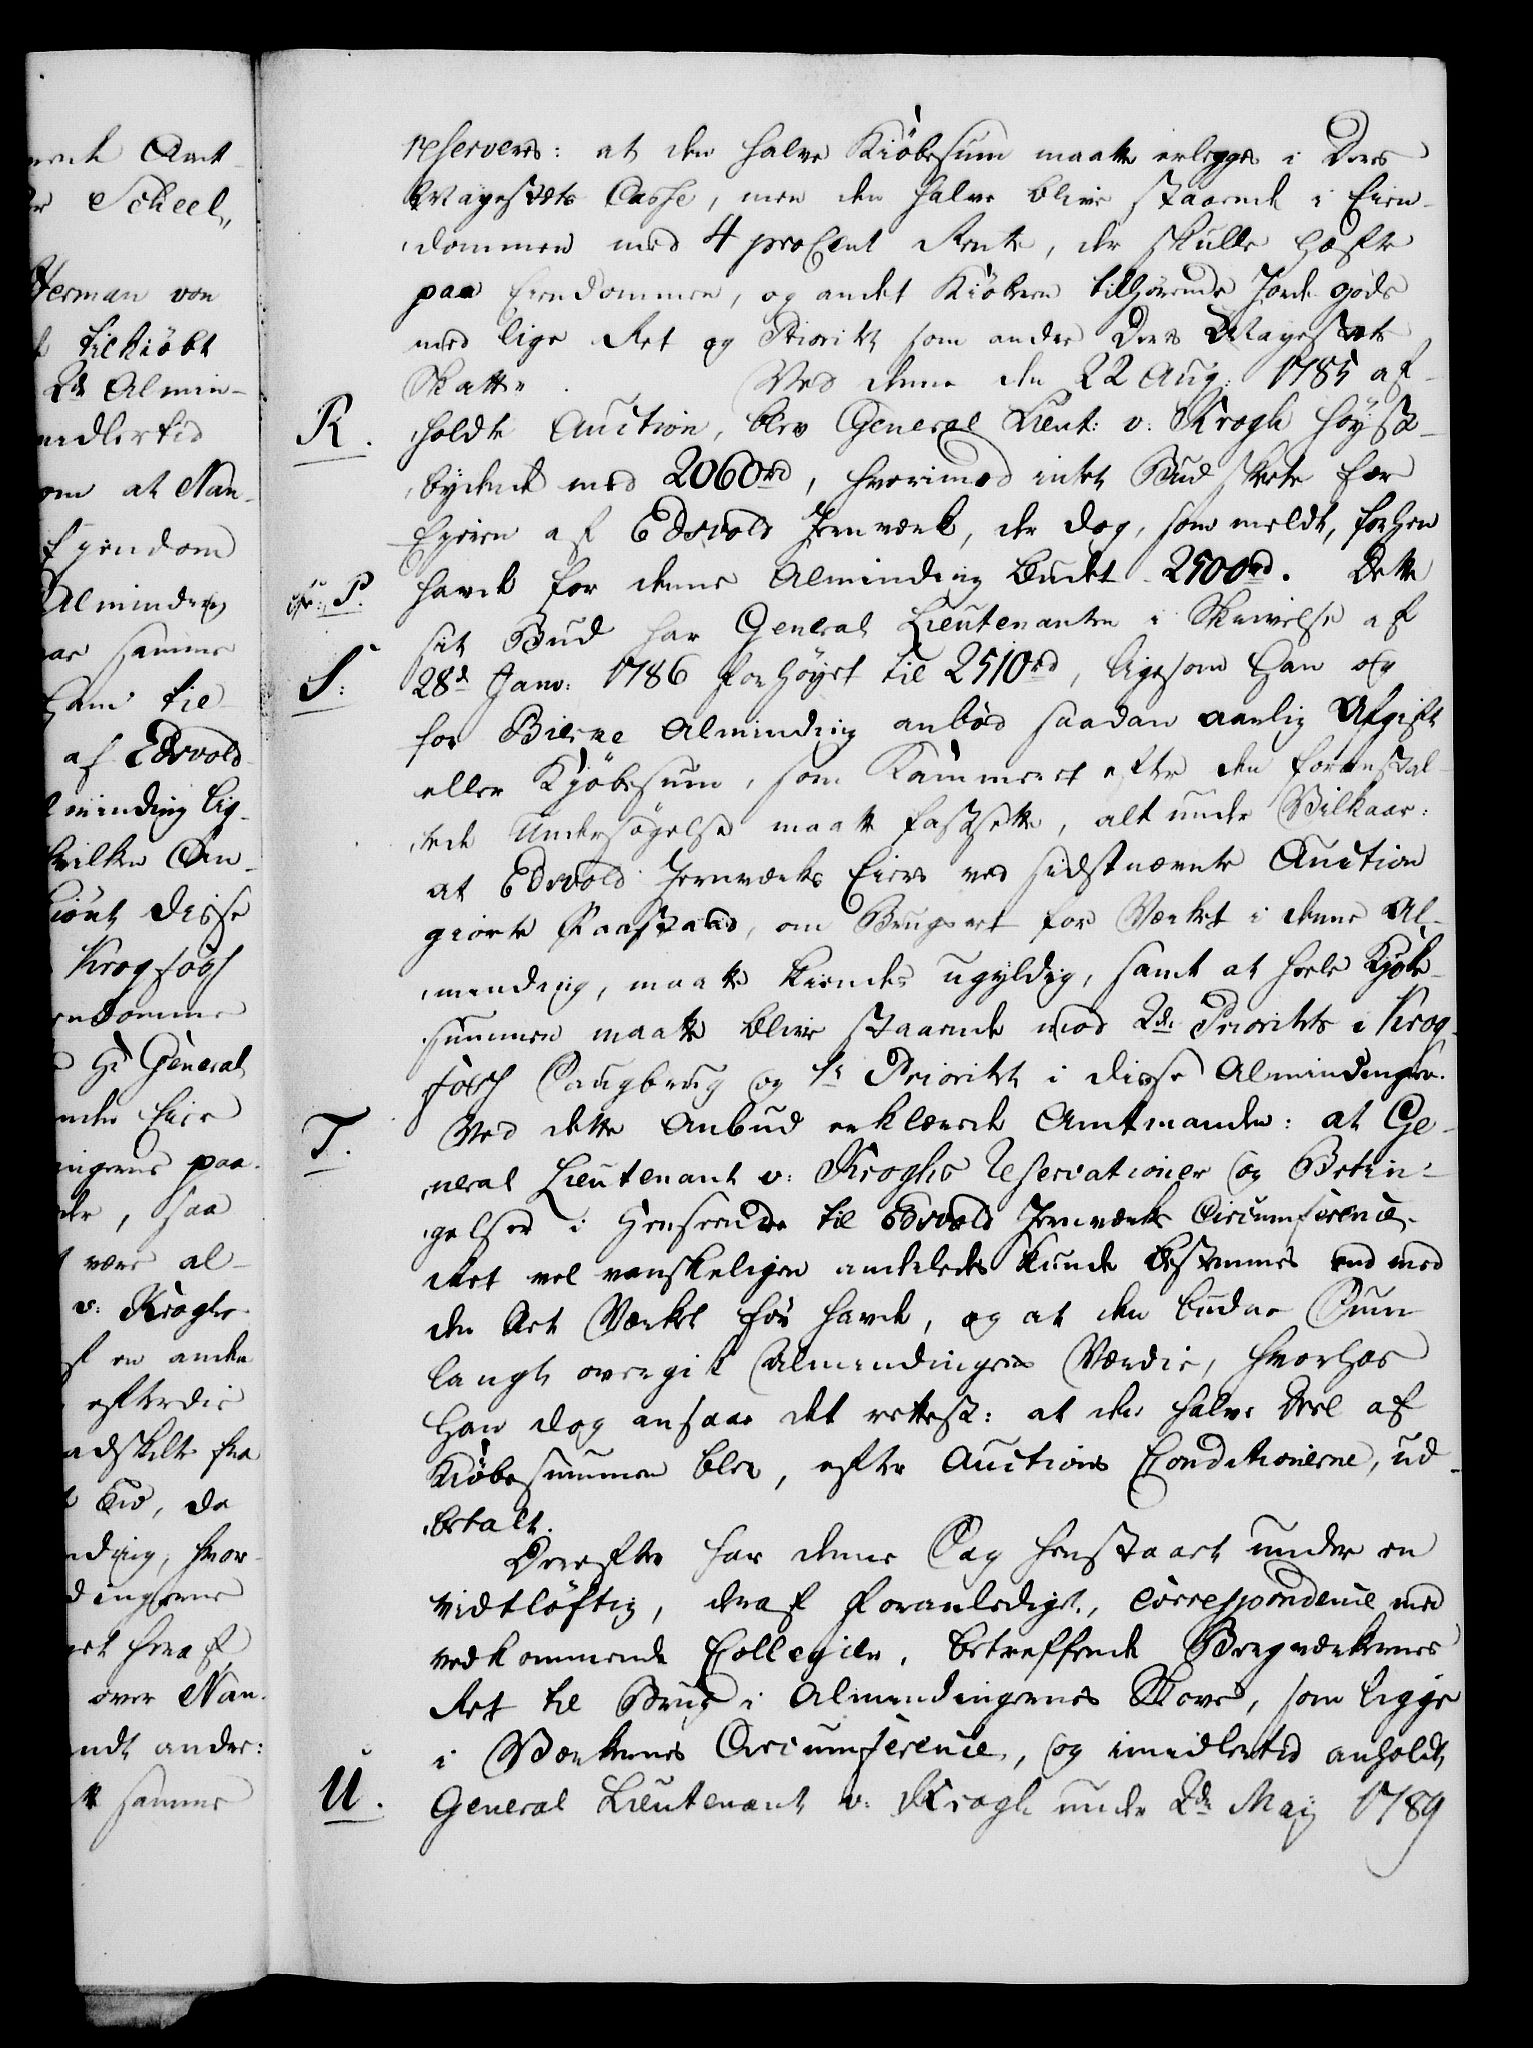 reserveres: at den halve Kiöbesum maatte erlegges i Deres
Mayestæts Casse, men den halve blive staaende i Eien-
dommen med 4 pro Cent Rente, der skulle hæfte
paa Eiendommen, og andet Kiöberen tilhörende Jorde gods
med lige Ret og Prioritet som andre Deres Mayestæts
Skatter. Ved denne den 22 Aug: 1785 af-
R. holdte Auction, blev General Lieut: v: Krogh höyst-
bydende med 2060 rd, hvorimod intet Bud skete for
Eyeren af Edsvold Jernværk, der dog, som meldt, forhen
cfr: P. havde for denne Alminding budet 2500 rd. Dette
sit Bud har General Lieutenanten i Skrivelse af
S: 28d Janv: 1786 forhöyet til 2510 rd, ligesom Han og
for Bierke Alminding anböd saadan aarlig Afgift
eller Kjöbesum, som Kammeret efter den foranstal-
tede Undersögelse maatte fastsette, alt under Vilkaar:
at Edsvold Jernværks Eiers ved sidstnævnte Auction
giorte Paastand, om Brugsret for Værket i denne Al-
minding, maatte kiendes ugyldig, samt at heele Kjöbe-
summen maatte blive staaende mod 2de Prioritet i Krog-
fos Saugbrug og 1te Prioritet i disse Almindinger.
T. Ved dette Anbud erklærede Amtmanden: at Ge-
neral Lieutenant v: Kroghs Reservationer og Betin-
gelser i Henseende til Edsvold Jernværks Circumference
Ret vel vanskeligen anderledes kunde bestemmes end med
den Ret Værket för havde, og at den budne Sum
langt overgik Almindingens Værdie, hvorhos
Han dog ansaae det rettest: at den halve Deel af
Kiöbesummen blev, efter Auctions Conditionerne, ud-
betalt.
Derefter har denne Sag henstaaet under en
vidtlöftig, deraf foranlediget, Correspondence med
vedkommende Collegier, betreffende Bergværkernes
Ret til Brug i Almindingernes Skove, som ligge
i Værkernes Circumference, og imidlertid anholdt
U. General Lieutenant v: Krogh under 2de Maij 1789